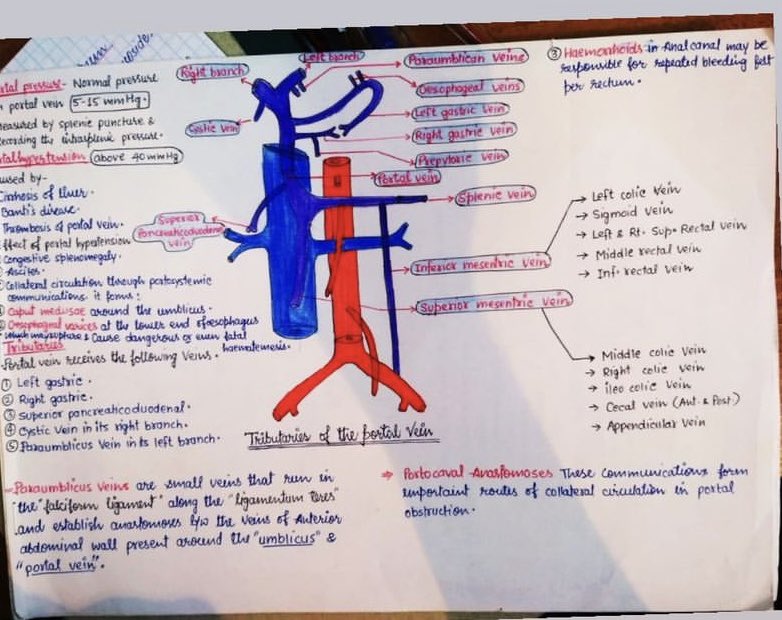 Portal pressure- Normal pressure
portal vein 5-15 mmHg.
measured by splenic puncture &
recording the intrasplenic pressure.
Portal hypertension (above 40mmHg)
caused by-
Cirrhosis of liver.
Banti's disease.
Thrombosis of portal vein.
Effect of portal hypertension
Congestive splenomegaly.
Ascites.
Collateral circulation through portosystemic
communications it forms:
Caput medusae around the umblicus.
Oesophageal varices at the lower end of oesophagus
which may rupture & cause dangerous or even fatal
haematemesis.
Tributaries
Portal vein receives the following veins.
① Left gastric.
② Right gastric.
③ Superior pancreaticoduodenal.
④ Cystic vein in its right branch.
⑤ Paraumblicus vein in its left branch.
Right branch
Cystic vein
Superior
Pancreaticoduodenal
vein
Left branch
Paraumblican veins
Oesophageal veins
Left gastric vein
Right gastric vein
Prepyloric vein
Portal vein
Splenic vein
Inferior mesentric vein
→ Left colic vein
→ Sigmoid vein
→ Left & Rt. Sup. Rectal vein
→ Middle rectal vein
→ Inf. rectal vein
Superior mesentric vein
→ Middle colic vein
→ Right colic vein
→ ileo colic vein
→ Cecal vein (Ant. & Post.)
→ Appendicular vein
Tributaries of the portal vein
③ Haemorrhoids in Anal canal may be
responsible for repeated bleeding felt
per rectum.
Paraumblicus veins are small veins that run in
"the "falciform ligament" along the "ligamentum teres"
and establish anastomoses b/w the veins of Anterior
abdominal wall present around the "umblicus" &
"portal vein".
⇒ Portocaval Anastomoses These communications form
important routes of collateral circulation in portal
obstruction.